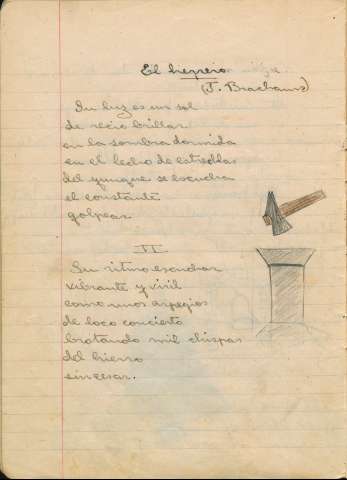 El herrero
(J. Brachams)
Su luz es un sol
de recio brillar
en la sombra dormida
en el lecho de estrellas
del yunque se escucha
el constante
golpear
II
Su ritmo escuchar
vibrante y viril
como unos arpegios
de loco concierto
brotando mil chispas
del hierro
sin cesar.